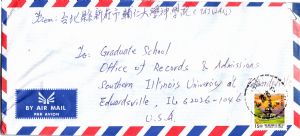 From: 台北縣新莊市輔仁大學理學院 (TAIWAN)
To: Graduate School
Office of Records & Admissions
Southern Illinois University at
Edwardsville, IL 62026-1046
U.S.A
BY AIR MAIL
PAR AVION